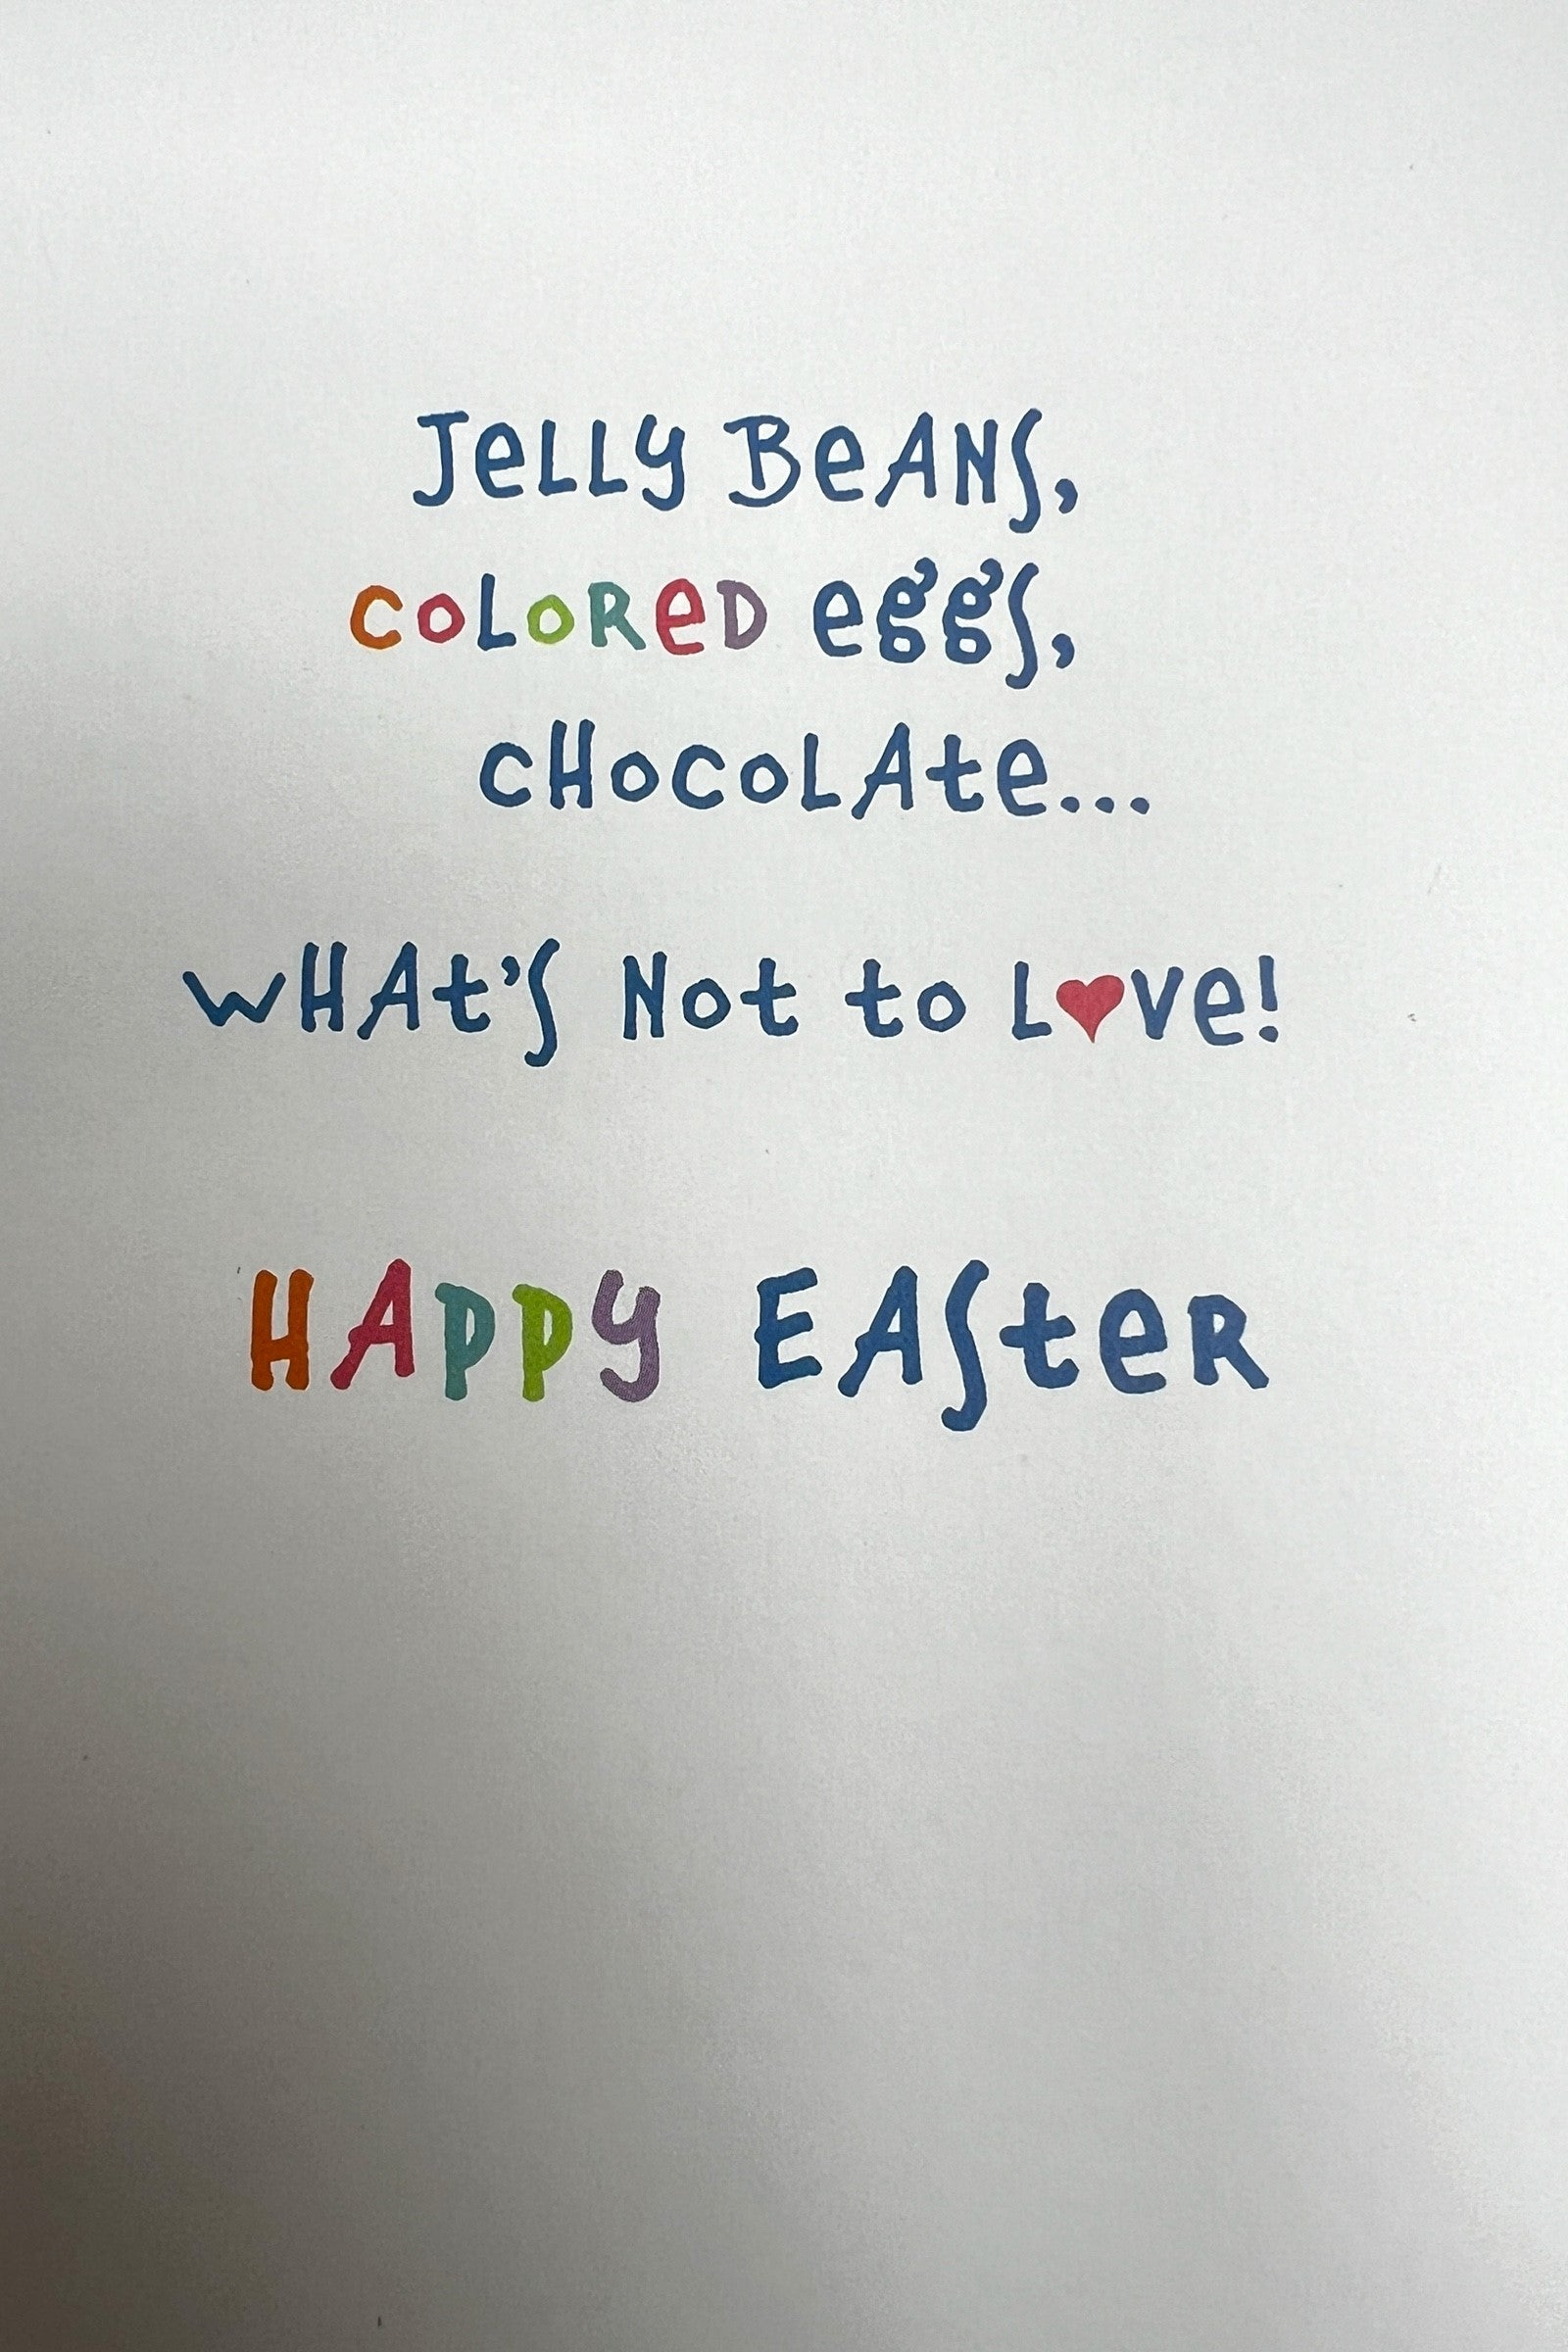 JeLLy BeANS,
coLoReD eggs,
cHocoLAte...
wHAt's Not to L♥ve!
HAppy EASteR